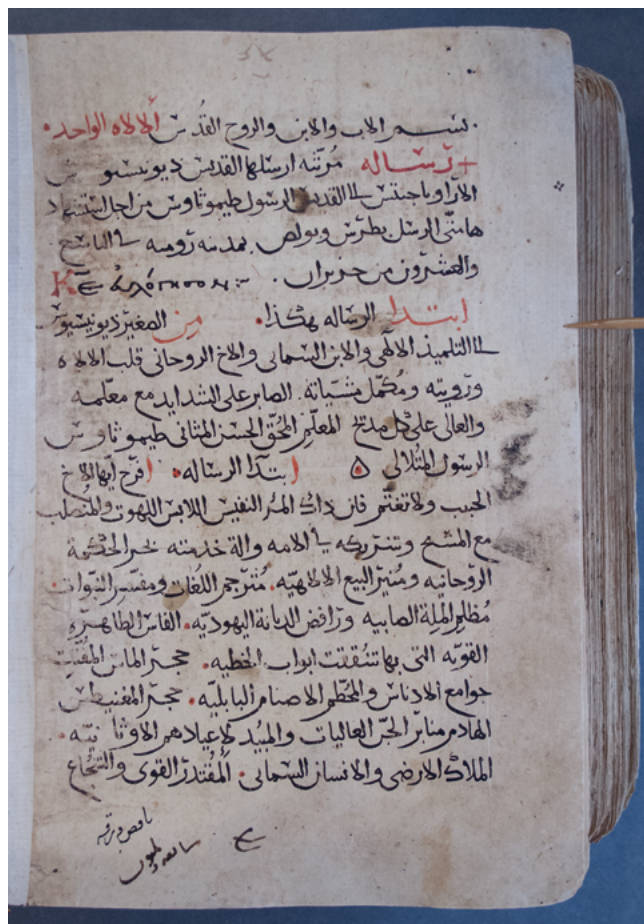 بسم الاب والابن والروح القدس الالاه الواحد
+ رساله مرثنه ارسلها القديس ديونيسيوس
القديس الرسول طيموثاوس من اجل استشهاد
هامتى الرسل بطرس وبولص بمدينه روميه في التاسع
والعشرون من حزيران
ابتدا الرساله هكذا من الصغير ديونيسيوس
الى التلميذ الالهي والابن السماني والاخ الروحاني قلب الالاه
ورويته ومكمل مشياته الصابر على الشدايد مع معلمه
والعالى على كل مدح المعلم المحق الحسن المثاني طيموثاوس
الرسول المثلالى ابتدآ الرساله افرح ايها الاخ
الحبيب ولا تغتم فان ذاك المر النفيس اللابس اللهوت والمتصلب
مع المسيح وشريكه في الامه والة خدمته بخر الحكمة
الروحانيه ومنير البيع الالاهيه مترجم اللغات ومفسر النبوات
مظلم الملة الصابيه ورافض الديانة اليهوديه الفاس الطاهره
القويه التى بها تشققت ابواب الخطيه حجر الماس المفتت
جوامع الادناس والمحطم الاصنام البابليه حجر المغنيطس
الهادم منابر الجن العاليات والمبيد لاعيادهم الاوثانيه
الملاك الارضى والانسان السمانى المقتدر القوى والشجاع
ناقص ورقه